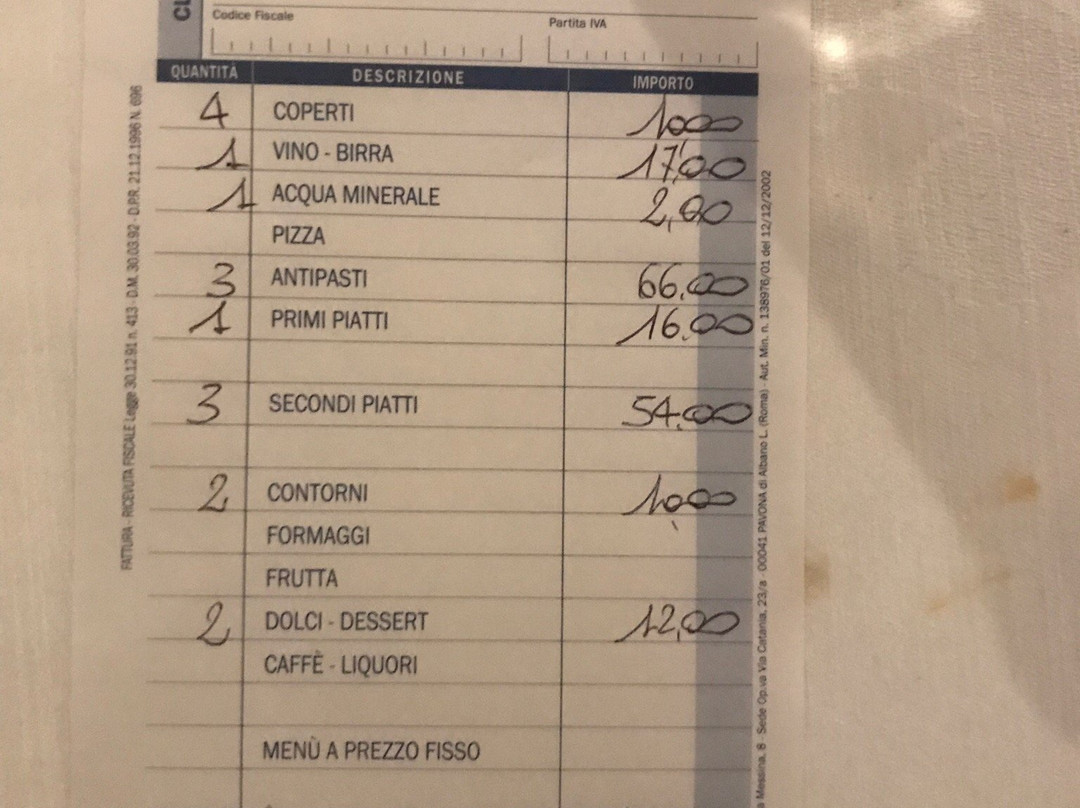 Codice Fiscale Partita IVA
QUANTITÀ DESCRIZIONE IMPORTO
4 COPERTI 10,00
1 VINO - BIRRA 17,00
1 ACQUA MINERALE 2,00
PIZZA
3 ANTIPASTI 66,00
1 PRIMI PIATTI 16,00
3 SECONDI PIATTI 54,00
2 CONTORNI 10,00
FORMAGGI
FRUTTA
2 DOLCI - DESSERT 12,00
CAFFÈ - LIQUORI
MENÙ A PREZZO FISSO
FATTURA - RICEVUTA FISCALE Legge 30.12.91 n. 413 - D.M. 30.03.92 - D.P.R. 21.12.1996 N. 696
Messina, 8 - Sede Op.va Via Catania, 23/a - 00041 PAVONA di Albano L. (Roma) - Aut. Min. n. 138976/01 del 12/12/2002